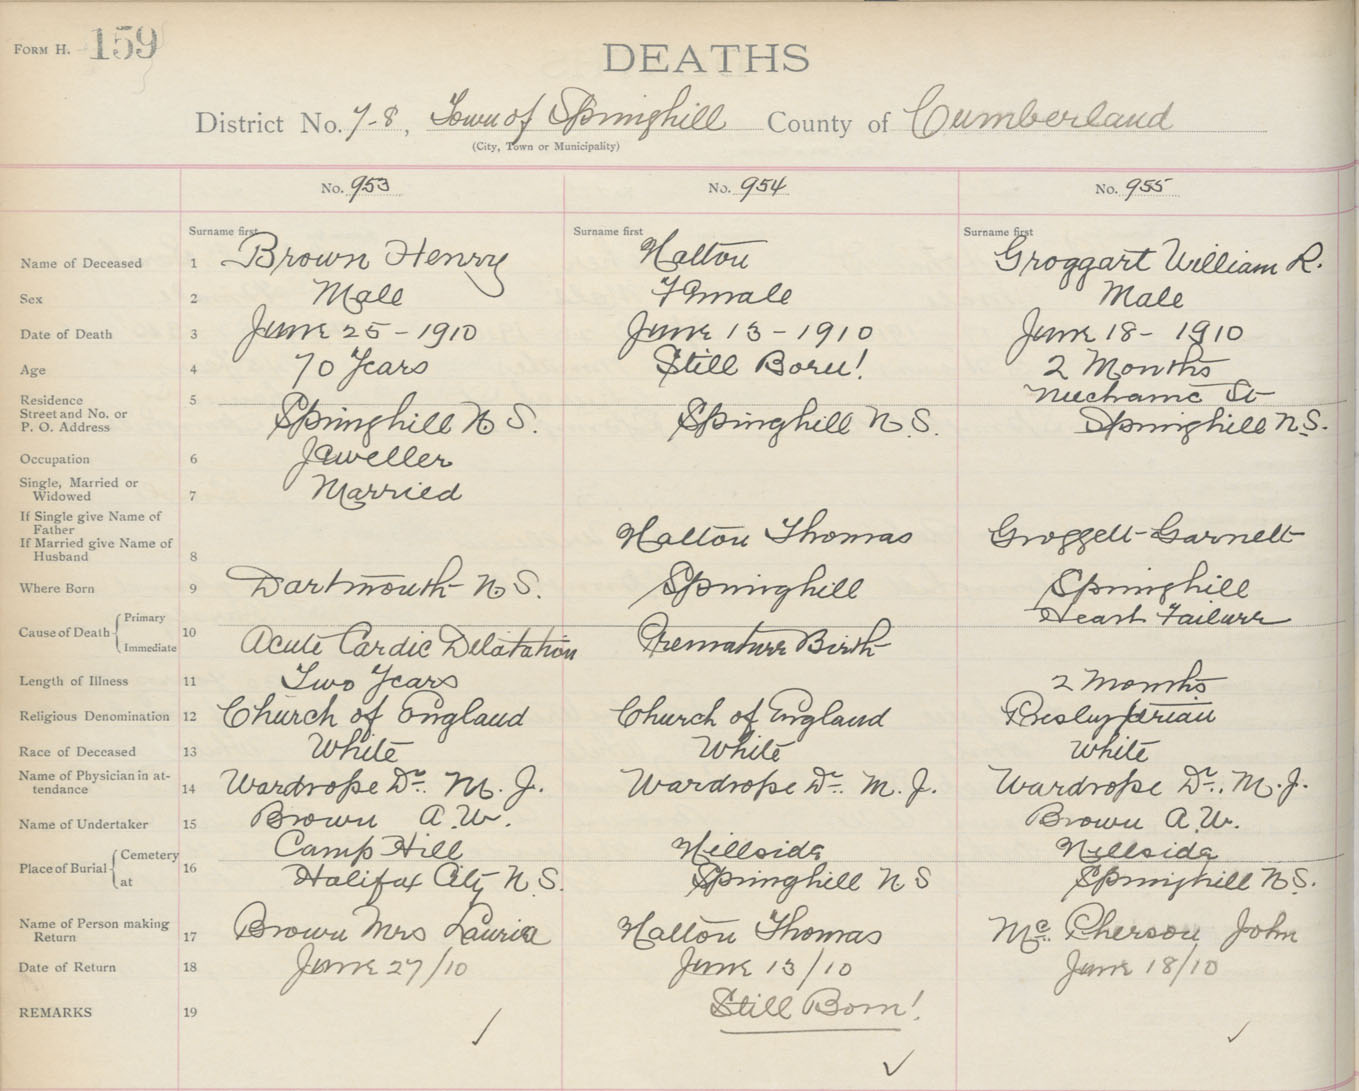 FORM H. 159
DEATHS
District No. 7-8, Town of Springhill County of Cumberland
(City, Town or Municipality)
No. 953 No. 954 No. 955
Surname first Surname first Surname first
Name of Deceased 1 Brown Henry Halton Groggart William R.
Sex 2 Male Female Male
Date of Death 3 June 25 - 1910 June 13 - 1910 June 18 - 1910
Age 4 70 Years Still Born! 2 Months
Residence 5 Mechanic St
Street and No. or
P. O. Address Springhill N S. Springhill N.S. Springhill N.S.
Occupation 6 Jeweller
Single, Married or
Widowed 7 Married
If Single give Name of
Father
If Married give Name of Halton Thomas Groggett Garnett
Husband 8
Where Born 9 Dartmouth N S. Springhill Springhill
Cause of Death { Primary Heart Failure
Immediate 10 Acute Cardic Delatation Premature Birth
Length of Illness 11 Two Years 2 Months
Religious Denomination 12 Church of England Church of England Presbyterian
Race of Deceased 13 White White White
Name of Physician in at-
tendance 14 Wardrope Dr. M. J. Wardrope Dr. M. J. Wardrope Dr. M. J.
Name of Undertaker 15 Brown A. W. Brown A. W.
Place of Burial { Cemetery Camp Hill Hillside Hillside
at 16 Halifax City N.S. Springhill N S Springhill N.S.
Name of Person making
Return 17 Brown Mrs Halton Thomas Mc. Pherson John
Date of Return 18 June 27/10 June 13/10 June 18/10
REMARKS 19 Still Born!